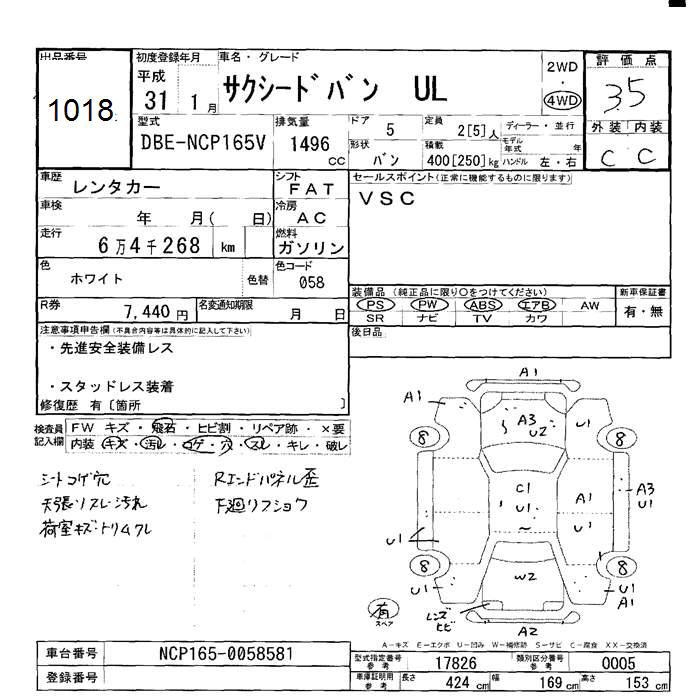 出品番号
1018
初度登録年月
平成
31 1月
車名・グレード
サクシードバン UL
2WD
・
4WD
評価点
3.5
外装 内装
C C
型式
DBE-NCP165V
排気量
1496
cc
ドア
5
定員
2[5]人
ディーラー・並行
形状
バン
積載
400[250]kg
モデル年式 年
ハンドル 左・右
車歴
レンタカー
シフト
FAT
車検
年 月( 日)
冷房
AC
走行
6万4千268 km
燃料
ガソリン
色
ホワイト
色替
色コード
058
R券
7,440円
名変通知期限
月 日
セールスポイント(正常に機能するものに限ります)
VSC
装備品 (純正品に限り○をつけてください)
PS PW ABS エアB AW
SR ナビ TV カワ
新車保証書
有・無
後日品
注意事項申告欄(不具合内容等は具体的に記入して下さい)
・先進安全装備レス
・スタッドレス装着
修復歴 有〔箇所 〕
検査員記入欄
FW キズ・飛石・ヒビ割・リペア跡・×要
内装 キズ・汚レ・コゲ・穴・スレ・キレ・破レ
シートコゲ穴
天張リスレ・汚れ
荷室キズ・トリムクレ
Rエンドパネル歪
下廻リフショク
A1
A1
A3
U2
U1
8
8
C1
U1
~
A1
U1
A3
U1
U1
8
8
U1
W2
U1
A1
有
スペア
レンズ
ヒビ
A2
A-キズ E-エクボ U-凹み W-補修跡 S-サビ C-腐食 XX-交換済
車台番号
NCP165-0058581
登録番号
型式指定番号
参考
17826
類別区分番号
参考
0005
車庫証明用
参考
長さ 424 cm 幅 169 cm 高さ 153 cm